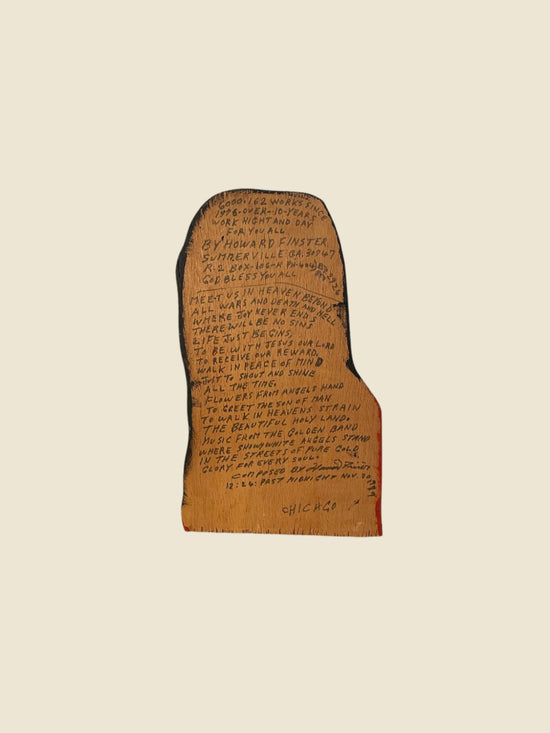 6000.162 WORKS SINCE
1976-OVER-10-YEARS
WORK RIGHT AND DAY
FOR YOU ALL
BY HOWARD FINSTER
SUMMERVILLE GA. 30747
R-2 BOX-106-A PH-404
GOD BLESS YOU ALL
MEET US IN HEAVEN BEYOND
ALL WARS AND DEATH AND HELL
WHERE JOY NEVER ENDS
THERE WILL BE NO SINS
LIFE JUST BEGINS,
TO BE WITH JESUS OUR LORD
TO RECEIVE OUR REWARD,
WALK IN PEACE OF MIND
JUST TO SHOUT AND SHINE
ALL THE TIME.
FLOWERS FROM ANGELS HAND
TO GREET THE SON OF MAN
TO WALK IN HEAVENS STRAIN
THE BEAUTIFUL HOLY LAND.
MUSIC FROM THE GOLDEN BAND
WHERE SNOWWHITE ANGELS STAND
IN THE STREETS OF PURE GOLD
GLORY FOR EVERY SOUL.
COMPOSED BY Howard Finster
12:24: PAST MIDNIGHT NOV.
CHICAGO